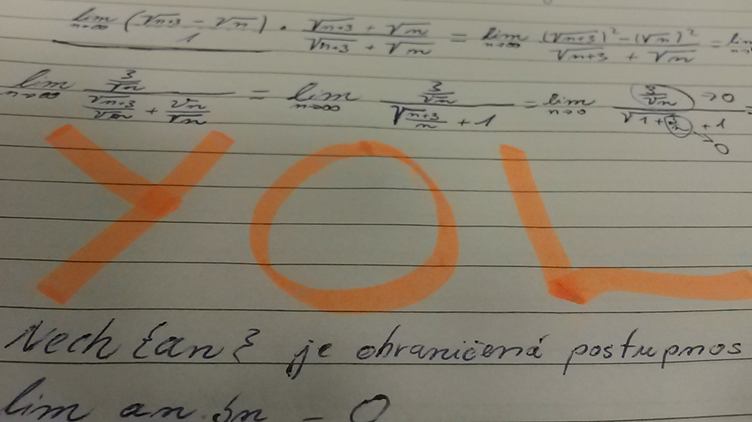 lim n→∞ (√n+3 - √n) / 1 · √n+3 + √n / √n+3 + √n = lim n→∞ (√n+3)² - (√n)² / √n+3 + √n = lim
lim n→∞ 3/√n / √n+3/√n + √n/√n = lim n→∞ 3/√n / √n+3/n + 1 = lim n→0 3/√n →0 / √1+3/n + 1 →0 =
YOL
Nech {an} je ohraničená postupnos
lim an.bn = 0